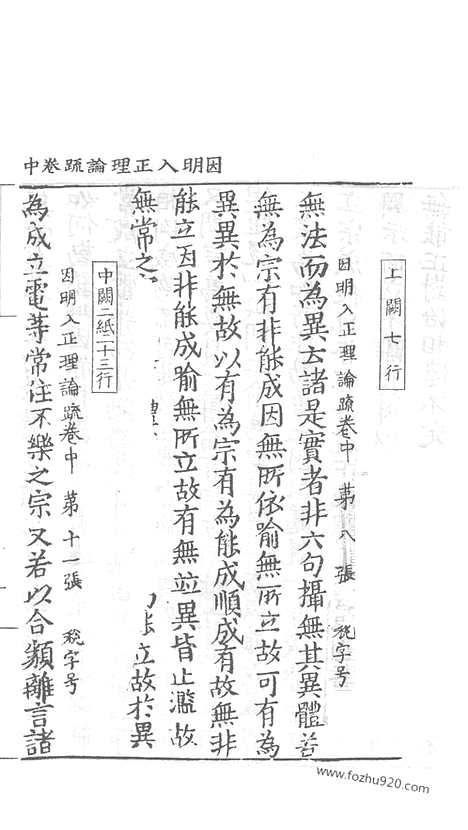 因明入正理論疏卷中
上闕七行
因明入正理論疏卷中 第八張 稅字号
無法而為異云諸是實者非六句攝無其異體若
無為宗有非能成因無所依喻無所立故可有為
異異於無故以有為宗有為能成順成有故無非
能立因非能成喻無所立故有無並異皆止濫故
無常之 立故於異
中闕二紙一十三行
因明入正理論疏卷中 第十一張 稅字号
為成立電等常住不樂之宗又若以合類離言諸
www.fozhu920.com